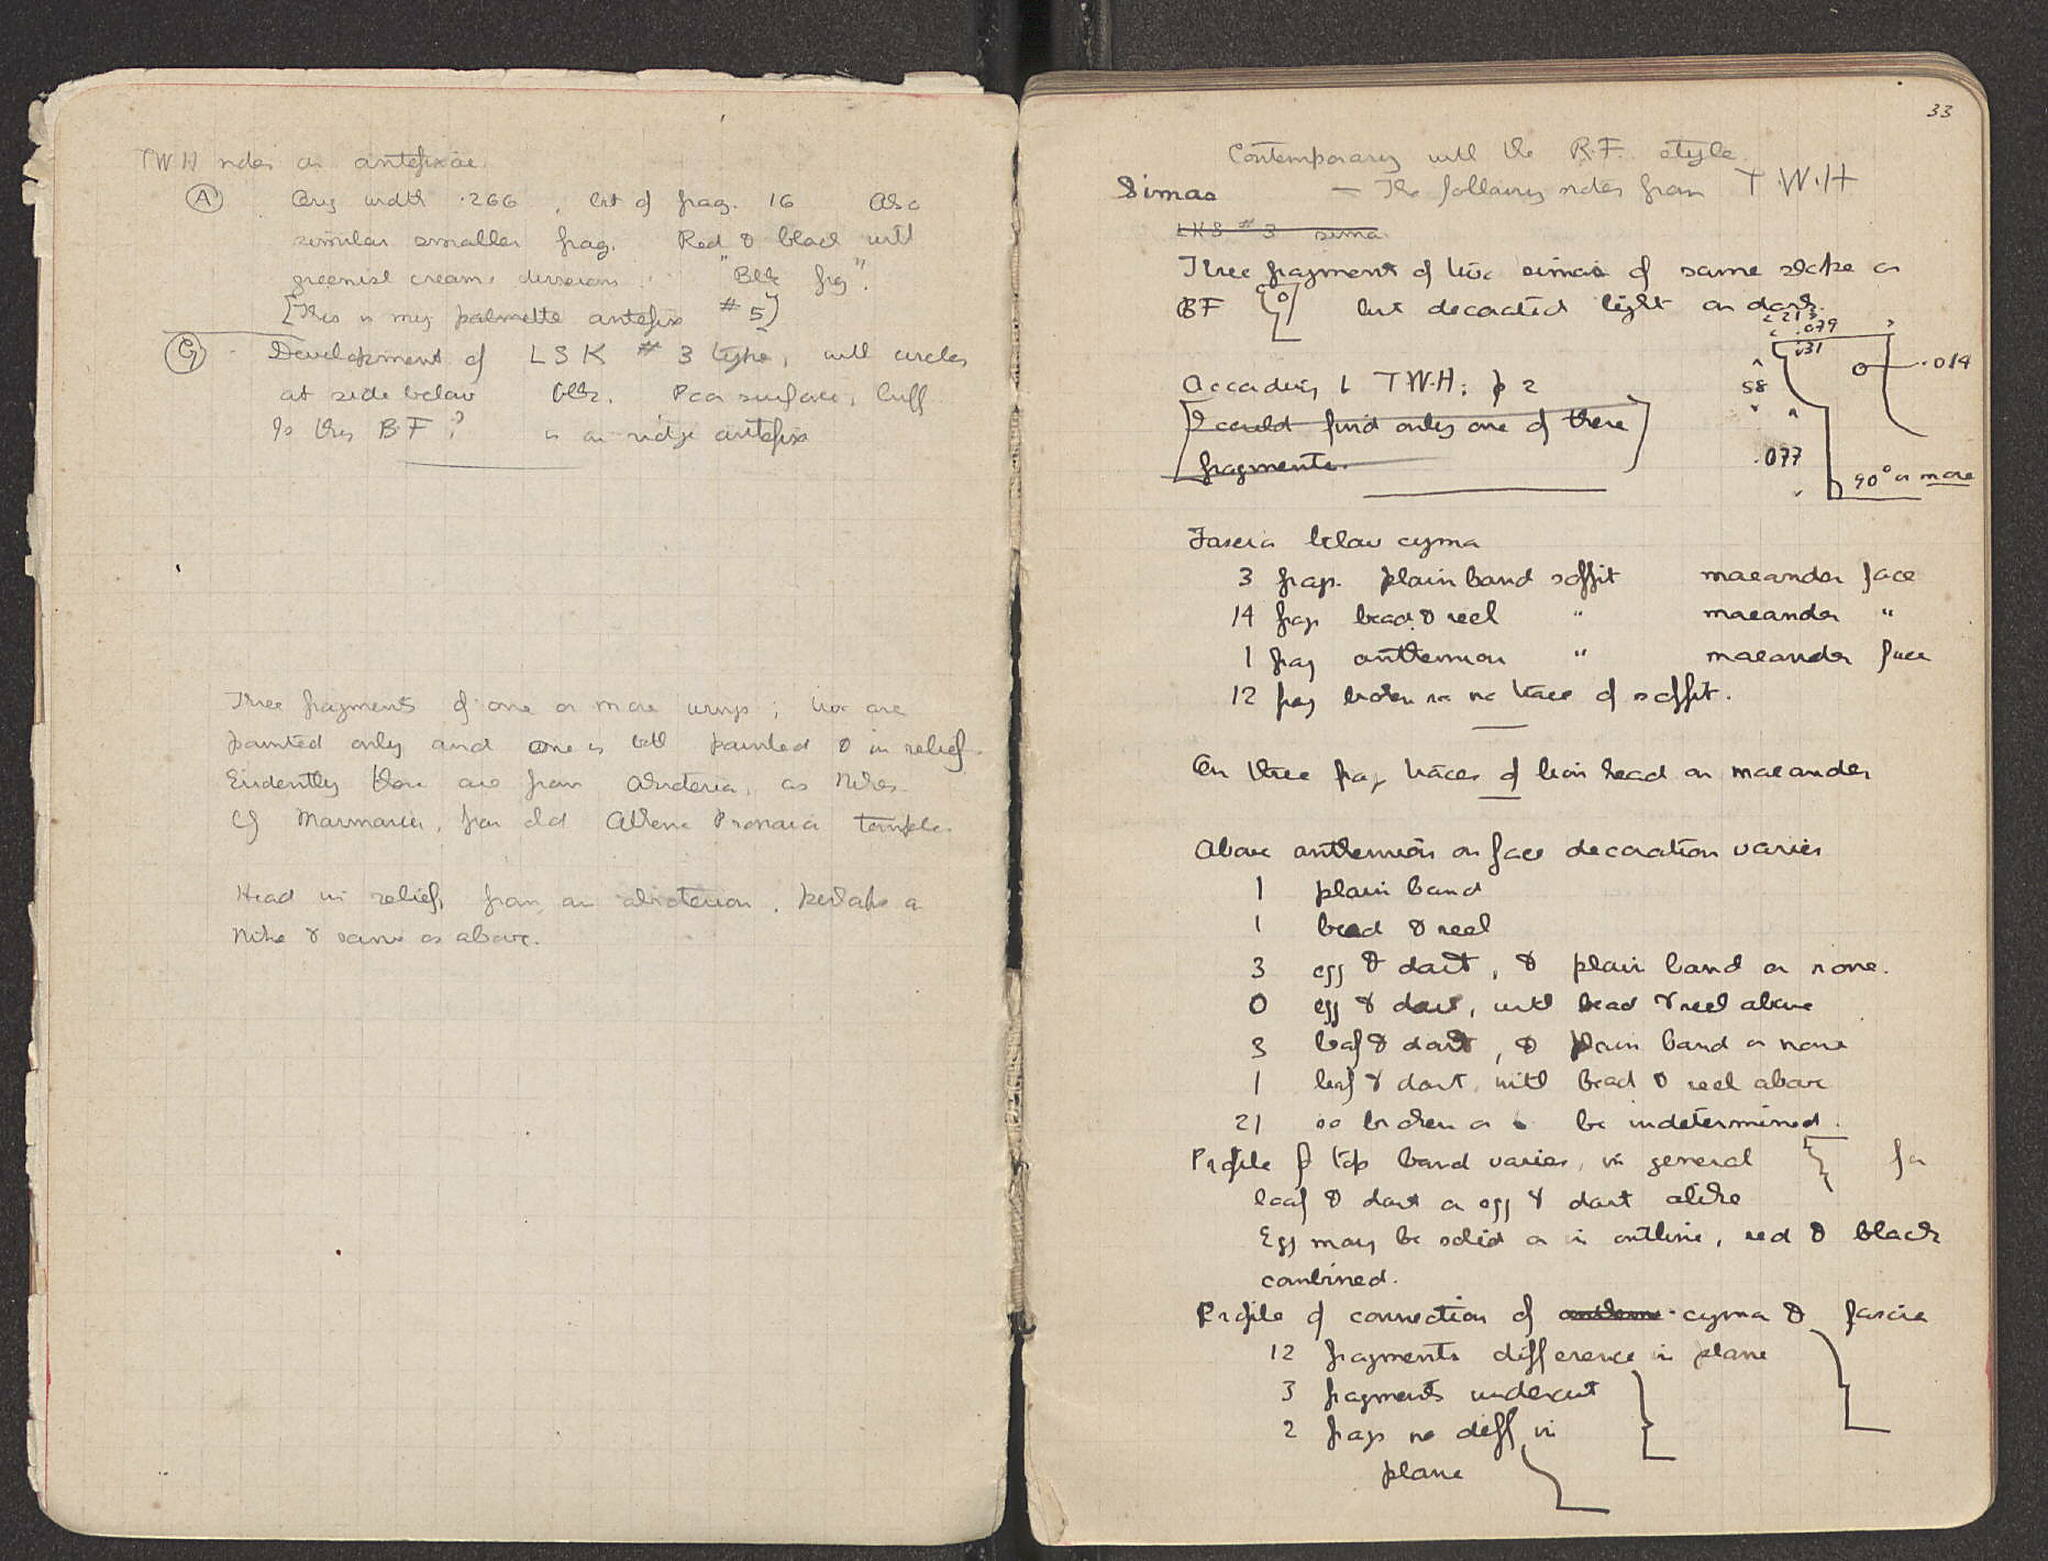 TWH notes on antefixae.
(A) Orig width .266, ht of frag. 16 Also
similar smaller frag. Red & black with
greenish cream divisions. "Blk fig".
[This is my palmette antefix #5]
(G) Development of LSK #3 type, with circles
at side below blk. Poor surface, buff
Is this BF? is a ridge antefix
Three fragments of one or more wings; two are
painted only and one is both painted & in relief.
Evidently these are from akroteria, as Nikes.
Cf Marmaria, from old Athena Pronaia temple.
Head in relief, from an akroterion. Perhaps a
Nike & same as above.
33
Contemporary with the R.F. style
Simas — The following notes from T.W.H
LKS #3 sima
Three fragments of two simas of same shape as
BF but decorated light on dark.
< .213
< .079 >
.031
.014
58
.077
90° or more
According to TWH: p 2
[I could find only one of these
fragments.]
Fascia below cyma
3 frags. plain band soffit maeander face
14 frags bead & reel " maeander "
1 frag anthemion " maeander face
12 frag broken so no trace of soffit.
On three frags traces of lion head on maeander
Above anthemion on face decoration varies
1 plain band
1 bead & reel
3 egg & dart, & plain band or none.
0 egg & dart, with bead & reel above
3 leaf & dart, & plain band or none
1 leaf & dart, with bead & reel above
21 so broken as be indetermined.
Profile of top band varies, in general for
leaf & dart or egg & dart alike
Egg may be solid or in outline, red & black
combined.
Profile of connection of cyma & fascia
12 fragments difference in plane
3 fragments undercut
2 frags no diff in
plane